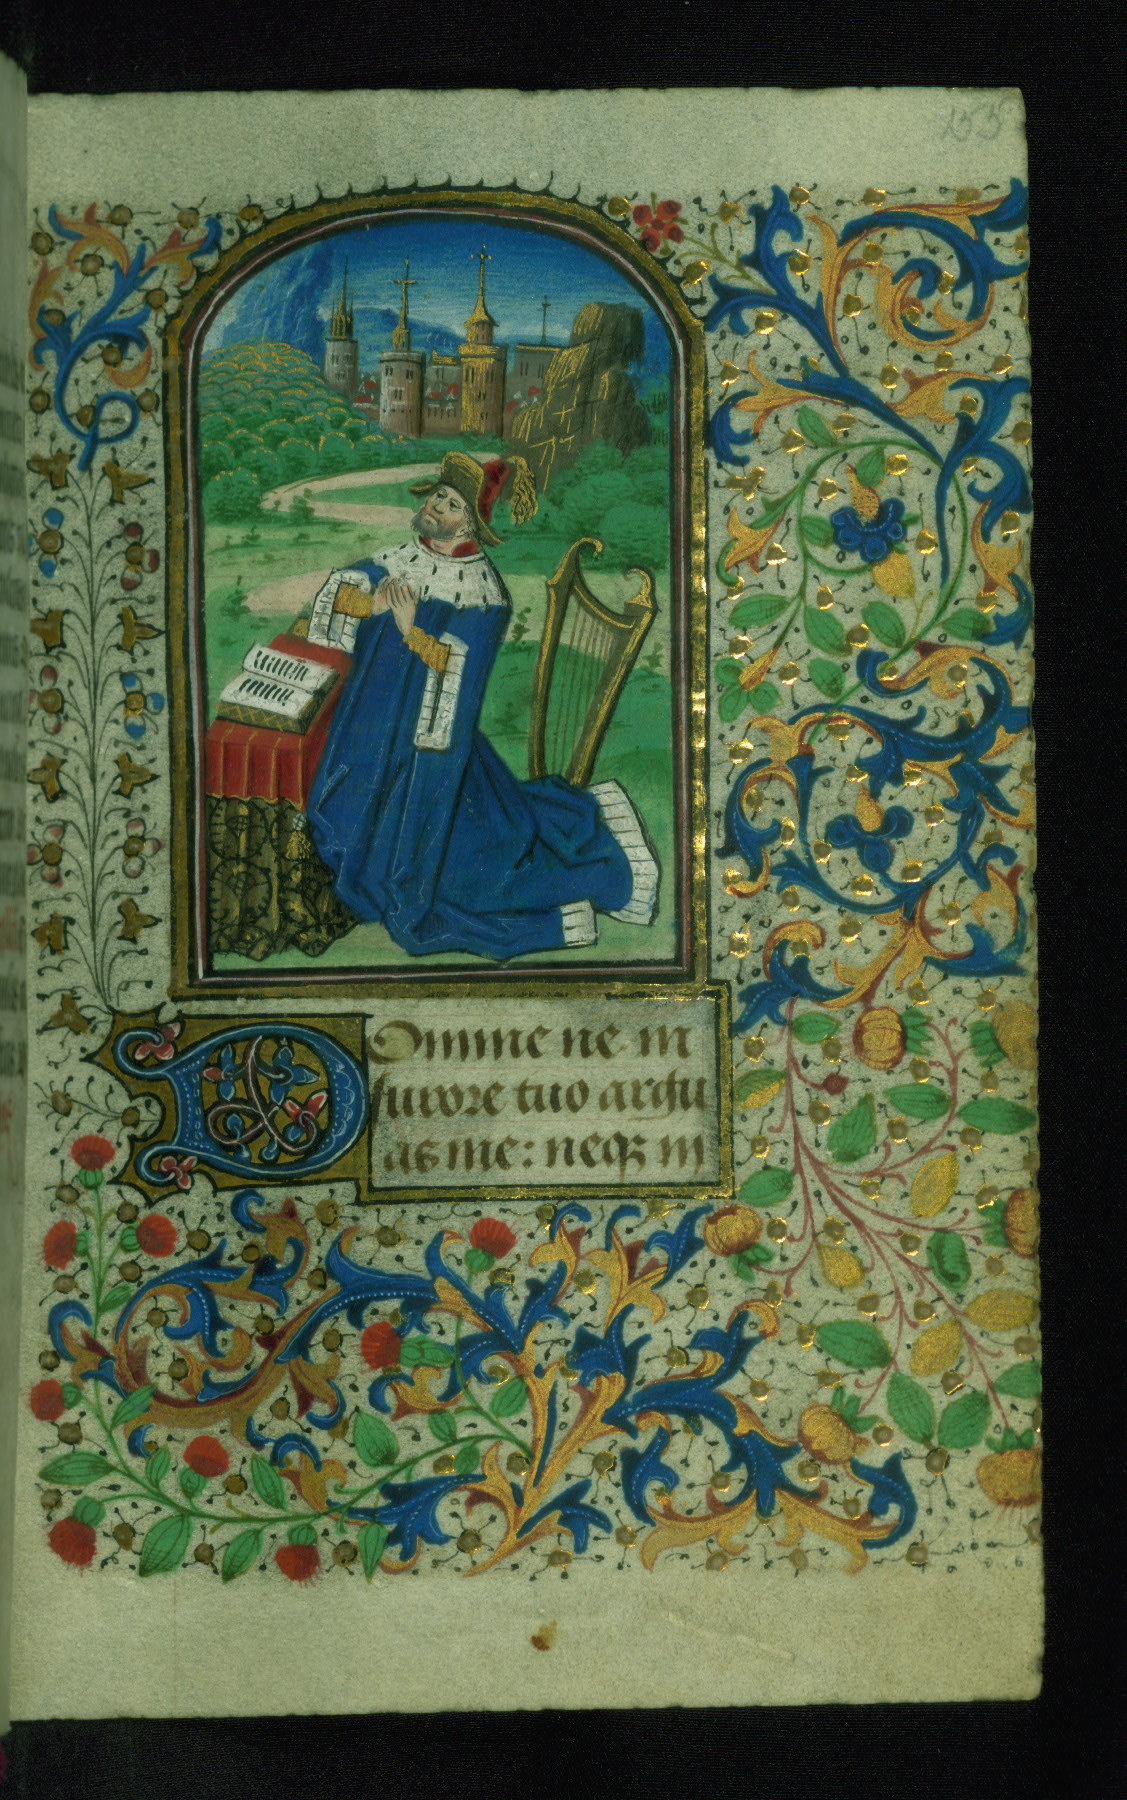 155
Domine ne in
furore tuo argu
as me: neqꝫ in